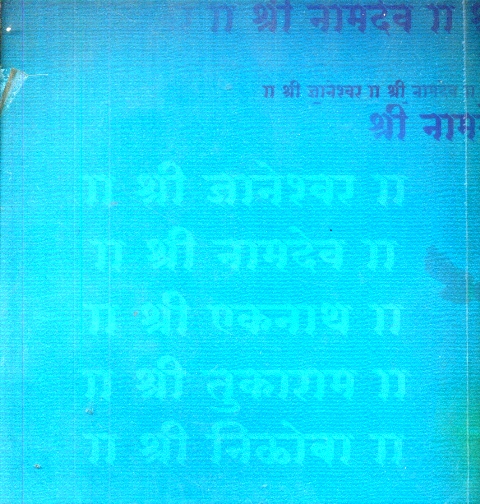 ॥ श्री नामदेव ॥
॥ श्री ज्ञानेश्वर ॥ श्री नामदेव ॥
श्री नाम
॥ श्री ज्ञानेश्वर ॥
॥ श्री नामदेव ॥
॥ श्री एकनाथ ॥
॥ श्री तुकाराम ॥
॥ श्री निळोबा ॥